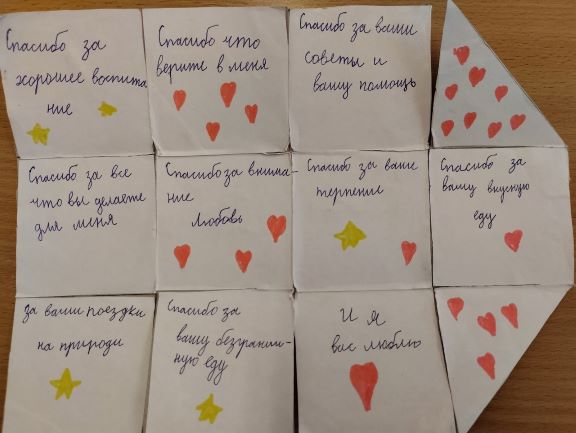 Спасибо за
хорошее воспита
ние
Спасибо что
верите в меня
Спасибо за ваши
советы и
вашу помощь
Спасибо за все
что вы делаете
для меня
Спасибо за внима-
ние
любовь
Спасибо за ваше
терпение
Спасибо за
вашу вкусную
еду
за ваши поездки
на природи
Спасибо за
вашу безгранич-
ную еду
И я
вас люблю